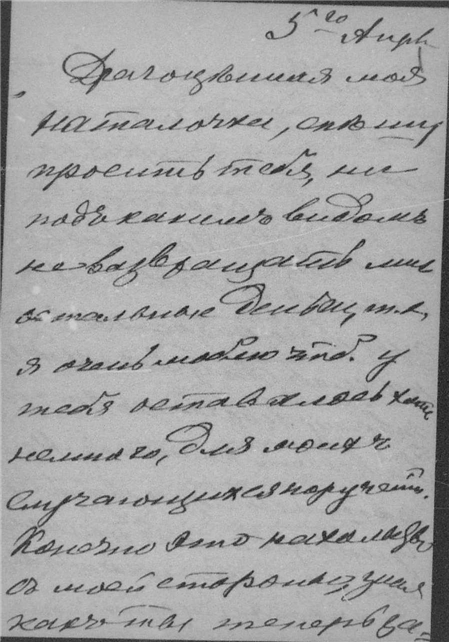 5го Апр.
Драгоцѣнная моя
Наталочка, спѣшу
просить тебя, ни
подъ какимъ видомъ
не возвращать мнѣ
остальные деньги, т.к.
я очень люблю чтоб. у
тебя оставалось хоть
немного, для моихъ
случающихся поручен.
Конечно это нахальство
съ моей стороны, зная
какъ ты теперь за-